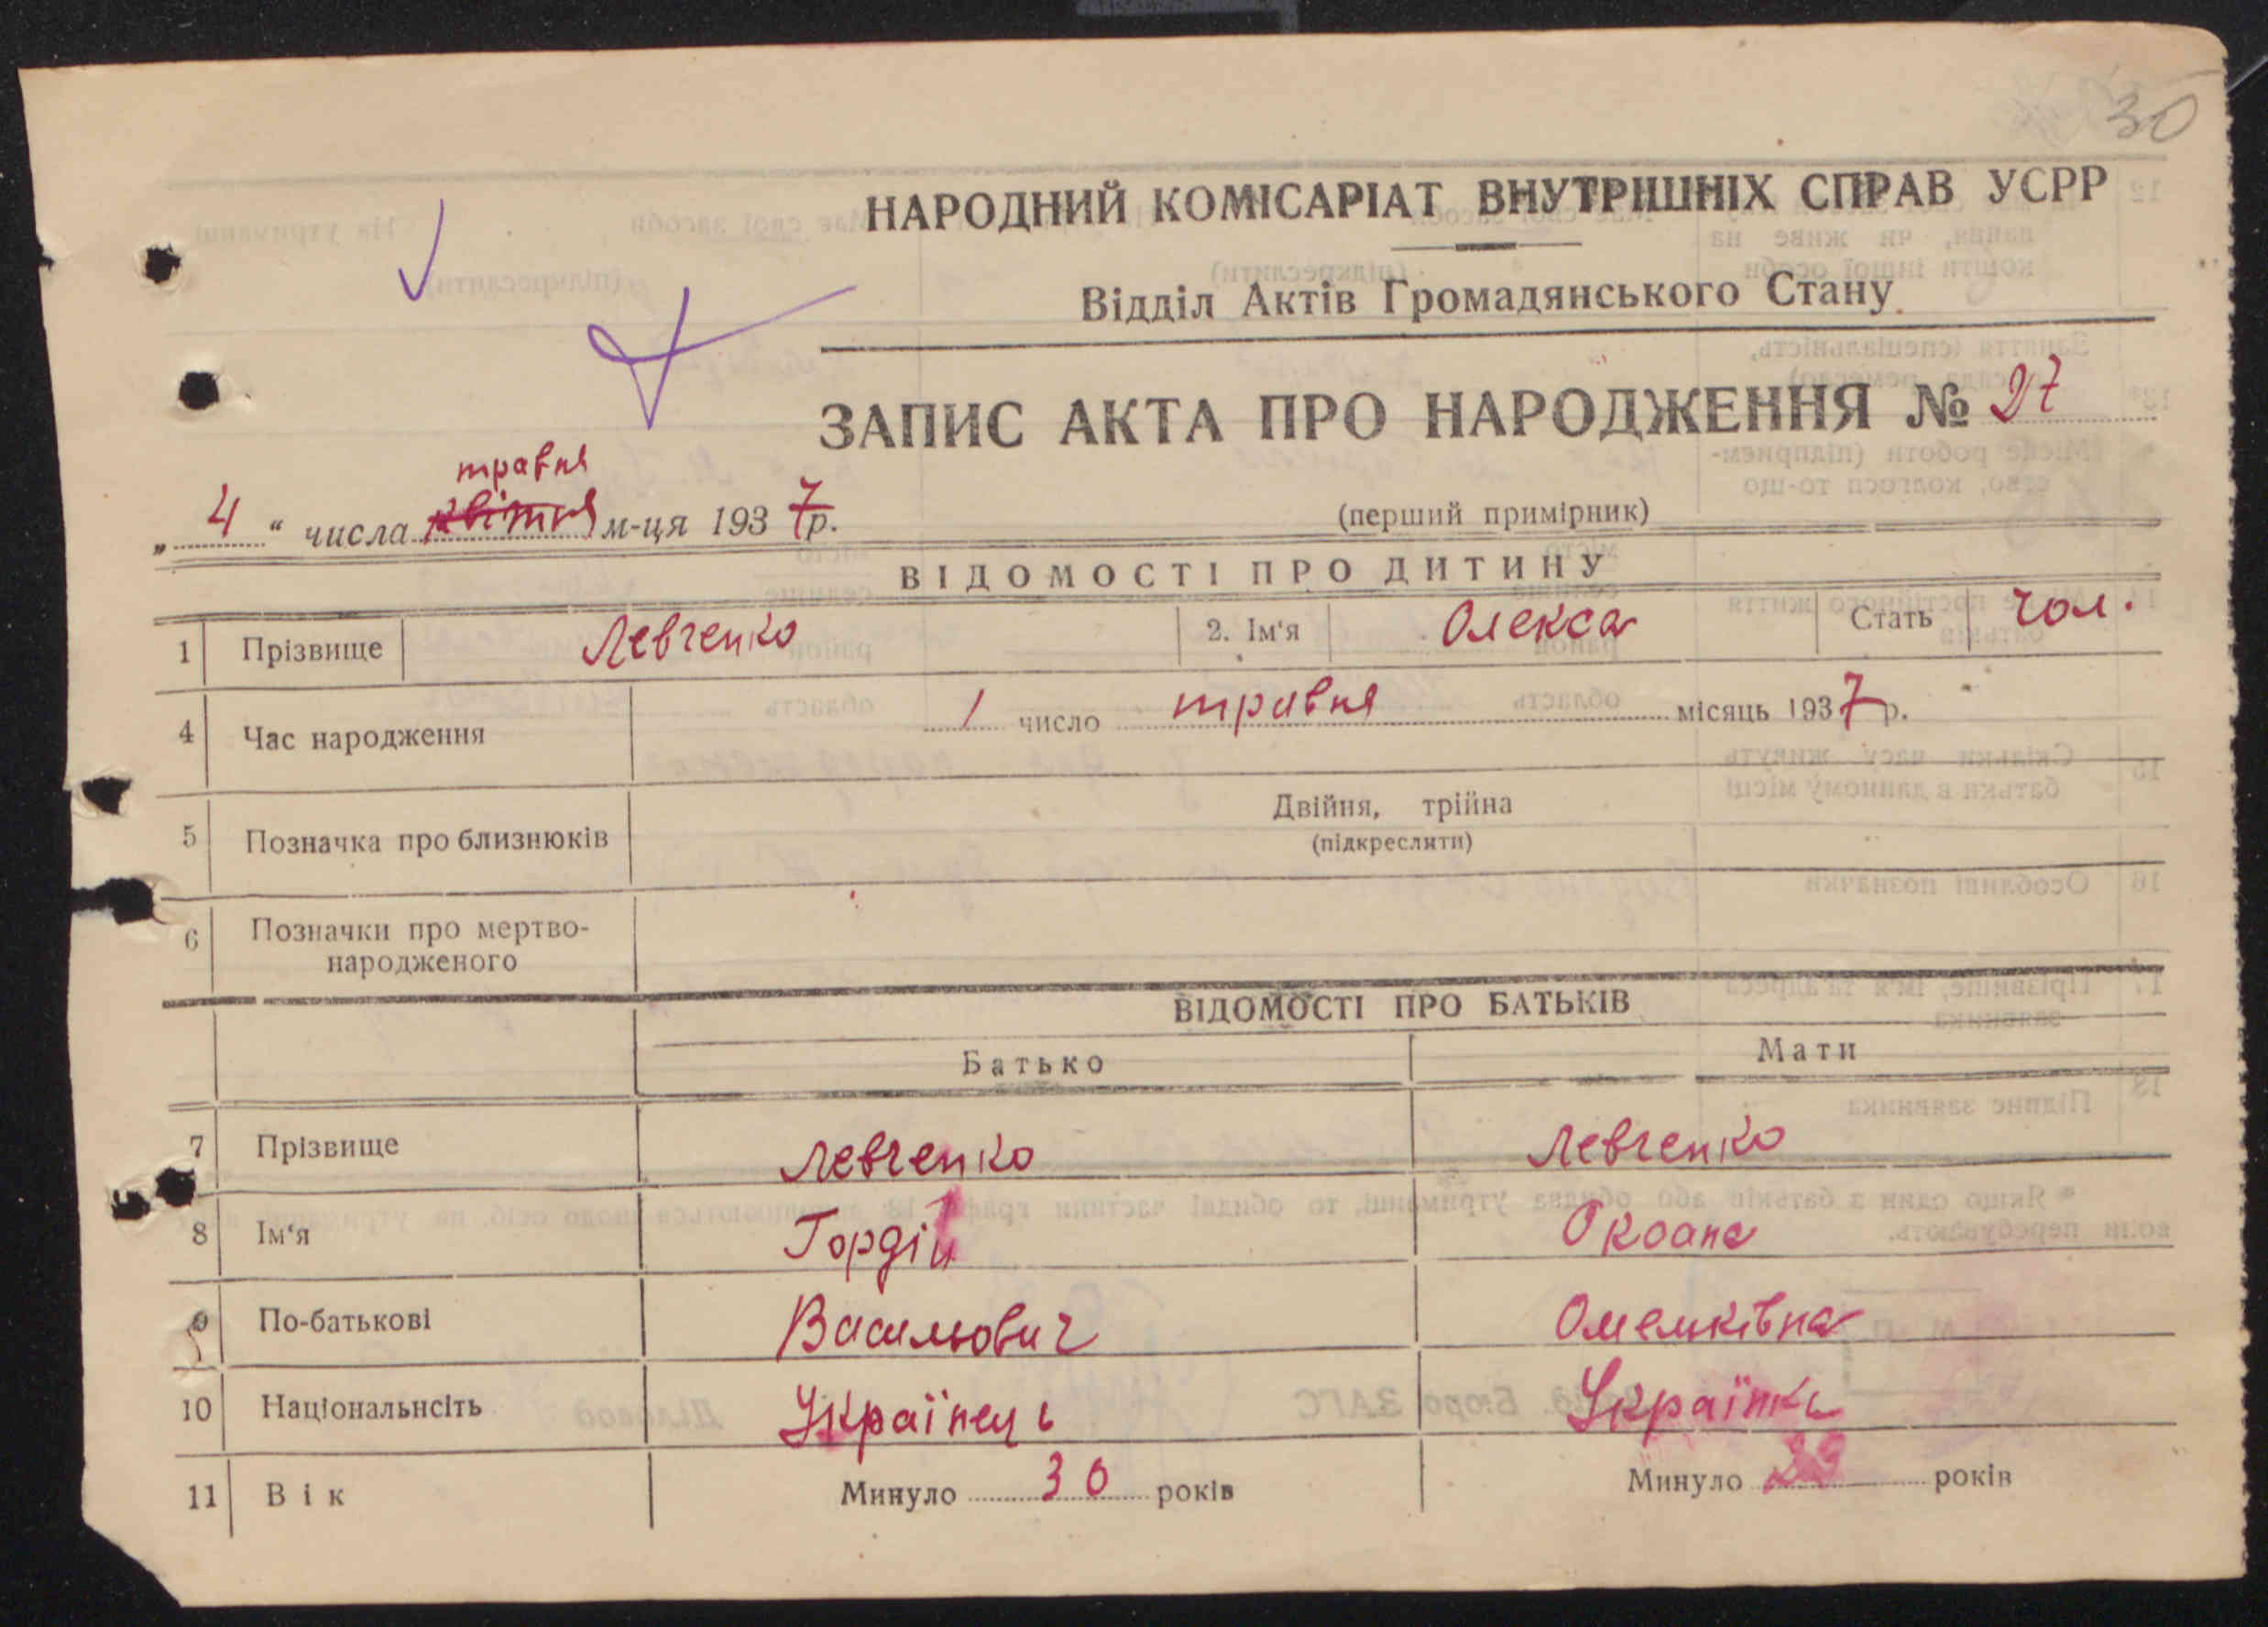 30
НАРОДНИЙ КОМІСАРІАТ ВНУТРІШНІХ СПРАВ УСРР
Відділ Актів Громадянського Стану
ЗАПИС АКТА ПРО НАРОДЖЕННЯ № 27
травня
„ 4 “ числа квітня м-ця 1937 р.
(перший примірник)
ВІДОМОСТІ ПРО ДИТИНУ
1 Прізвище Левченко 2. Ім‘я Олекса Стать чол.
4 Час народження 1 число травня місяць 1937 р.
5 Позначка про близнюків Двійня, трійна
(підкреслити)
6 Позначки про мертво-
народженого
ВІДОМОСТІ ПРО БАТЬКІВ
Батько Мати
7 Прізвище Левченко Левченко
8 Ім‘я Гордій
9 По-батькові Васильович Омельківна
10 Національнсіть Українець Українка
11 Вік Минуло 30 років Минуло років